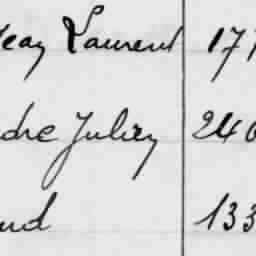 Jean Laurent 177
dre Julien 240
ud 133